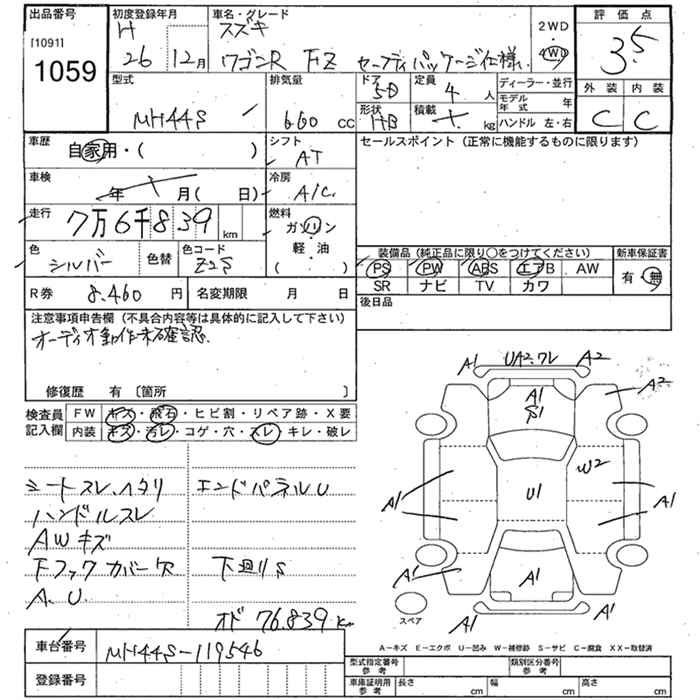 出品番号
[1091]
1059
初度登録年月
H
26 12月
車名・グレード
スズキ
ワゴンR FZ セーフティパッケージ仕様
2WD
4WD
評価点
3.5
外装 内装
C C
型式
MH44S
排気量
660 cc
ドア
5D
定員
4 人
形状
HB
積載
kg
ディーラー・並行
モデル年式 年
ハンドル 左・右
車歴
自家用・( )
シフト
AT
セールスポイント(正常に機能するものに限ります)
車検
年 月( 日)
冷房
A/C
走行
7万6千839 km
燃料
ガソリン
軽・油
( )
色
シルバー
色替
色コード
Z2S
装備品(純正品に限り〇をつけてください)
新車保証書
PS PW ABS エアB AW
SR ナビ TV カワ
有・無
R券 8.460 円
名変期限 月 日
後日品
注意事項申告欄(不具合内容等は具体的に記入して下さい)
オーディオ動作未確認
修復歴 有〔箇所 〕
検査員
記入欄
FW キズ・飛石・ヒビ割・リペア跡・X要
内装 キズ・汚レ・コゲ・穴・スレ・キレ・破レ
シートスレ、ヘタリ
ハンドルスレ
AWキズ
Fフックカバー欠
A.U.
エンドパネルU
下廻りS
オド 76.839 km
A1 UA2.ワレ A2
A1
S1
A2
W2
A1 U1 A1
A1 A1 A1
A1 A1
スペア
A-キズ E-エクボ U-凹み W-補修跡 S-サビ C-腐食 XX-取替済
車台番号 MH44S-119546
登録番号
型式指定番号
参考
類別区分番号
参考
車庫証明用
参考
長さ cm 幅 cm 高さ cm